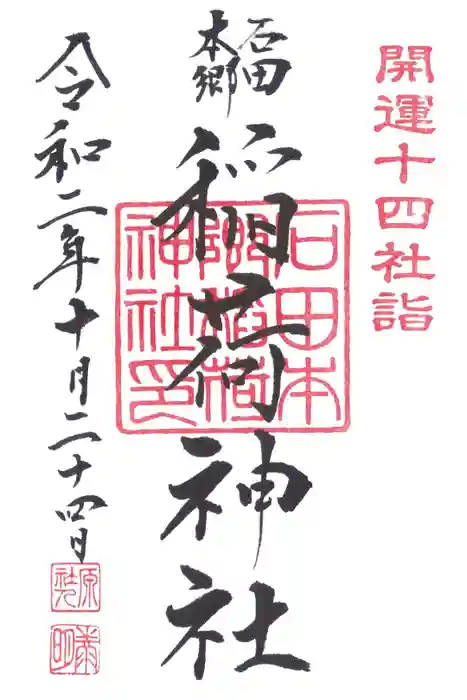 開運十四社詣
石田
本郷
稲荷神社
石田本
郷稲荷
神社印
令和二年十月二十四日